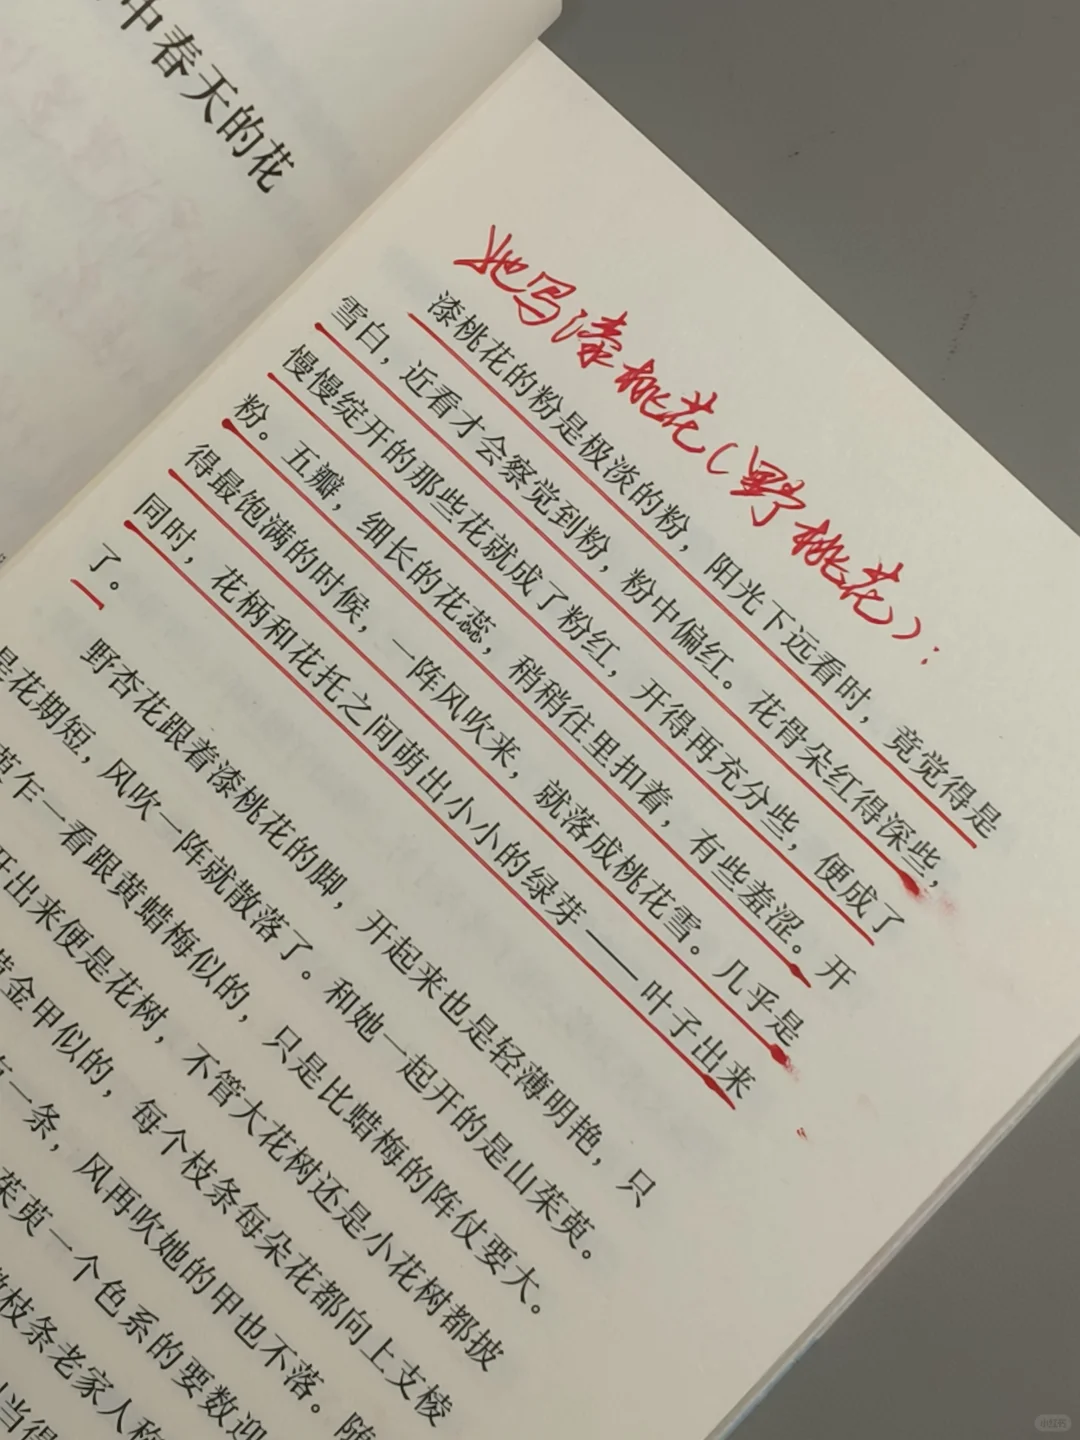 中春天的花
她写漆桃花(野桃花)：
漆桃花的粉是极淡的粉，阳光下远看时，竟觉得是
雪白，近看才会察觉到粉，粉中偏红。花骨朵红得深些，
慢慢绽开的那些花就成了粉红，开得再充分些，便成了
粉。五瓣，细长的花蕊，稍稍往里扣着，有些羞涩。开
得最饱满的时候，一阵风吹来，就落成桃花雪。几乎是
同时，花柄和花托之间萌出小小的绿芽——叶子出来
了。
野杏花跟着漆桃花的脚，开起来也是轻薄明艳，只
是花期短，风吹一阵就散落了。和她一起开的是山茱萸。
萸乍一看跟黄蜡梅似的，只是比蜡梅的阵仗要大。
开出来便是花树，不管大花树还是小花树都披
黄金甲似的，每个枝条每朵花都向上支棱
一条，风再吹她的甲也不落。随
茱萸一个色系的要数迎
枝条老家人称
当得
小红书